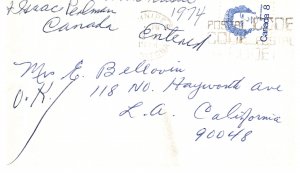 & Isaac Perlman 1974
Canada
Entered
POSTAL CODE
Canada 8
Mrs E. Bellovin
O.K. 118 No. Hayworth ave
L.A. California
90048